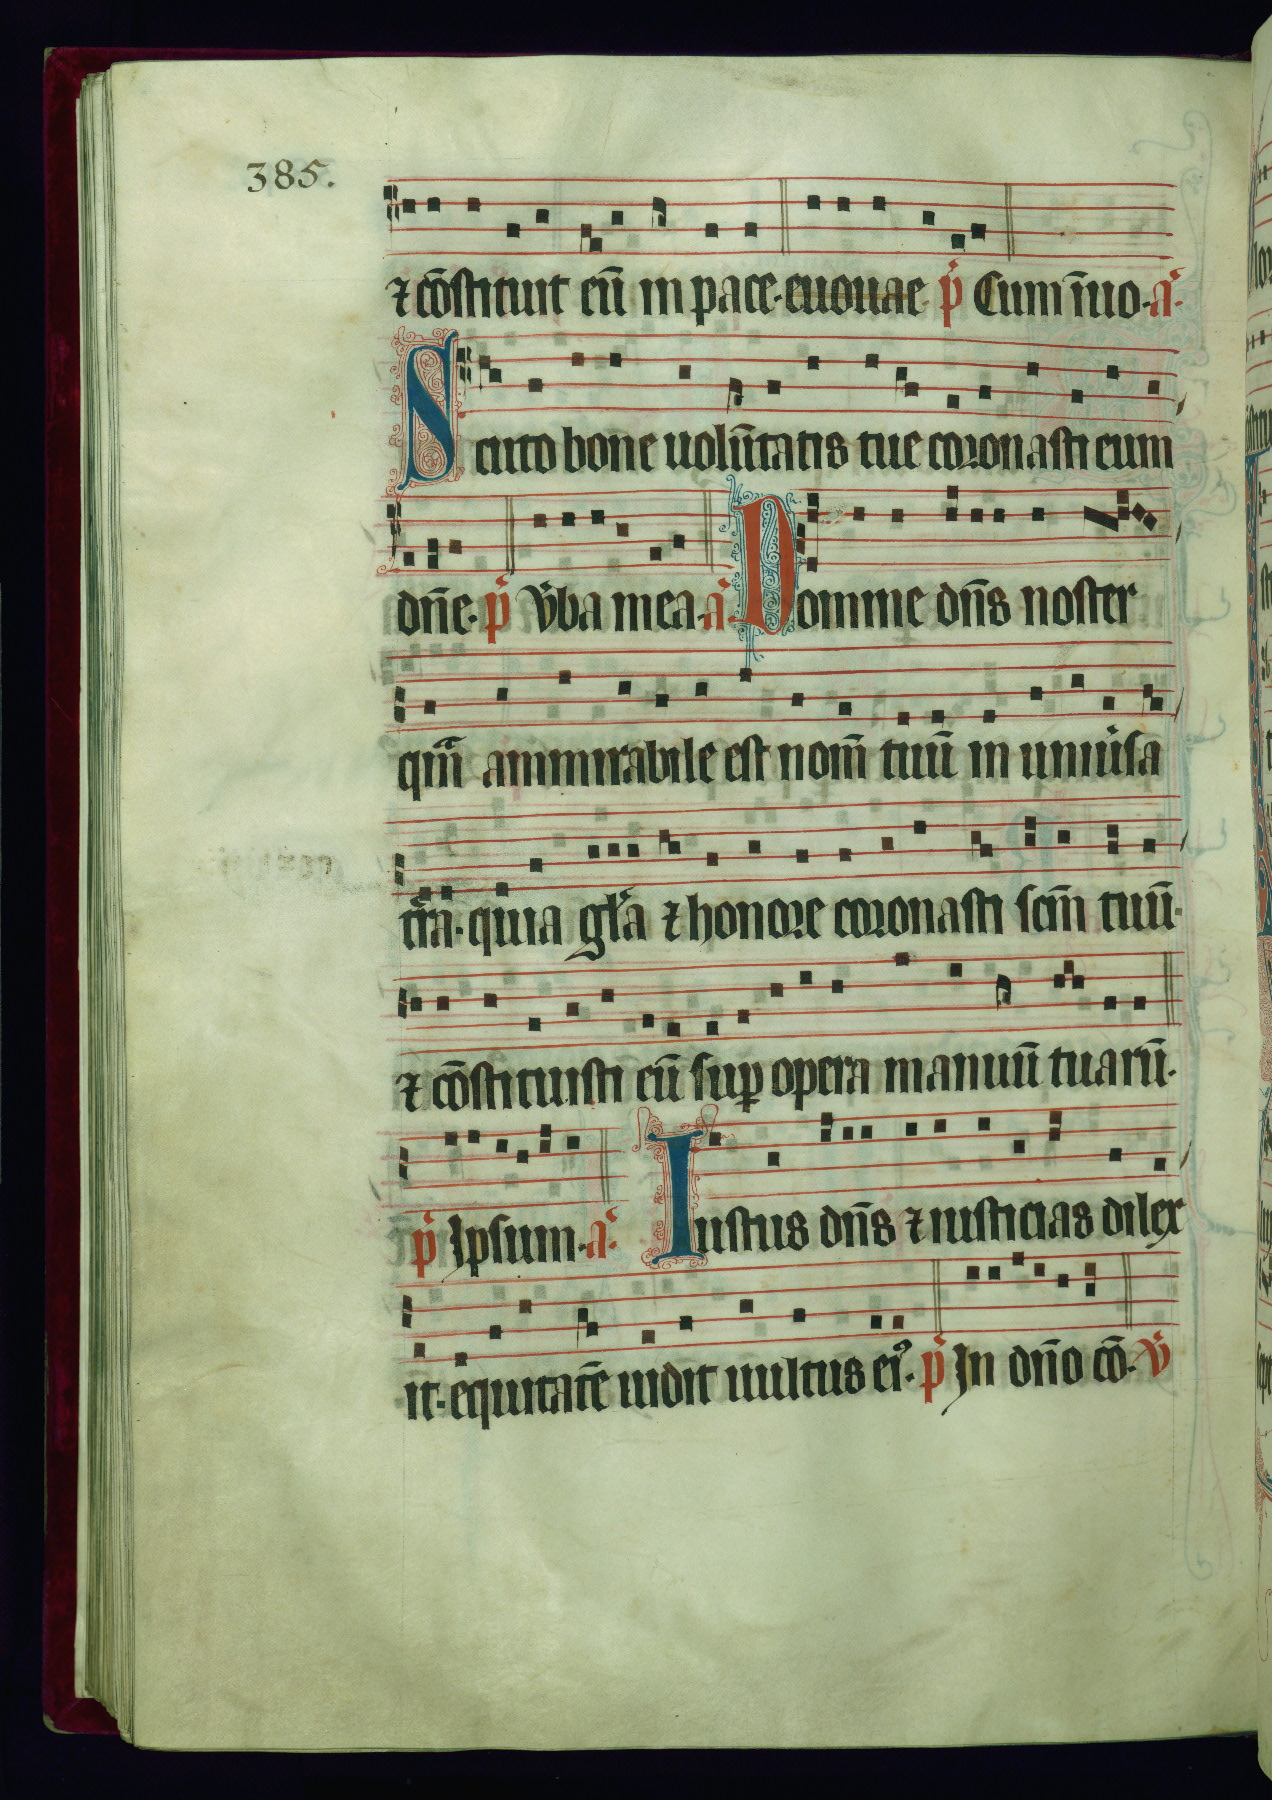 385.
⁊ cōstituit eū in pace. euouae p̄ Cum īuo. a̓.
Scuto bone uolūtatis tue coronasti eum
dn̄e. p̄ v̓ba mea. a̓. Domine dn̄s noster
qm̄ ammirabile est nom̄ tuū in uniu̓sa
tr̄a. quia gl̓a ⁊ honore coronasti scm̄ tuū.
⁊ cōstituisti eū suꝑ opera manuū tuarū.
p̄ Ipsum. a̓. Iustus dn̄s ⁊ iusticias dilex
it. equitatē uidit uultus eiꝰ. p̄ In dn̄o cō. v̓